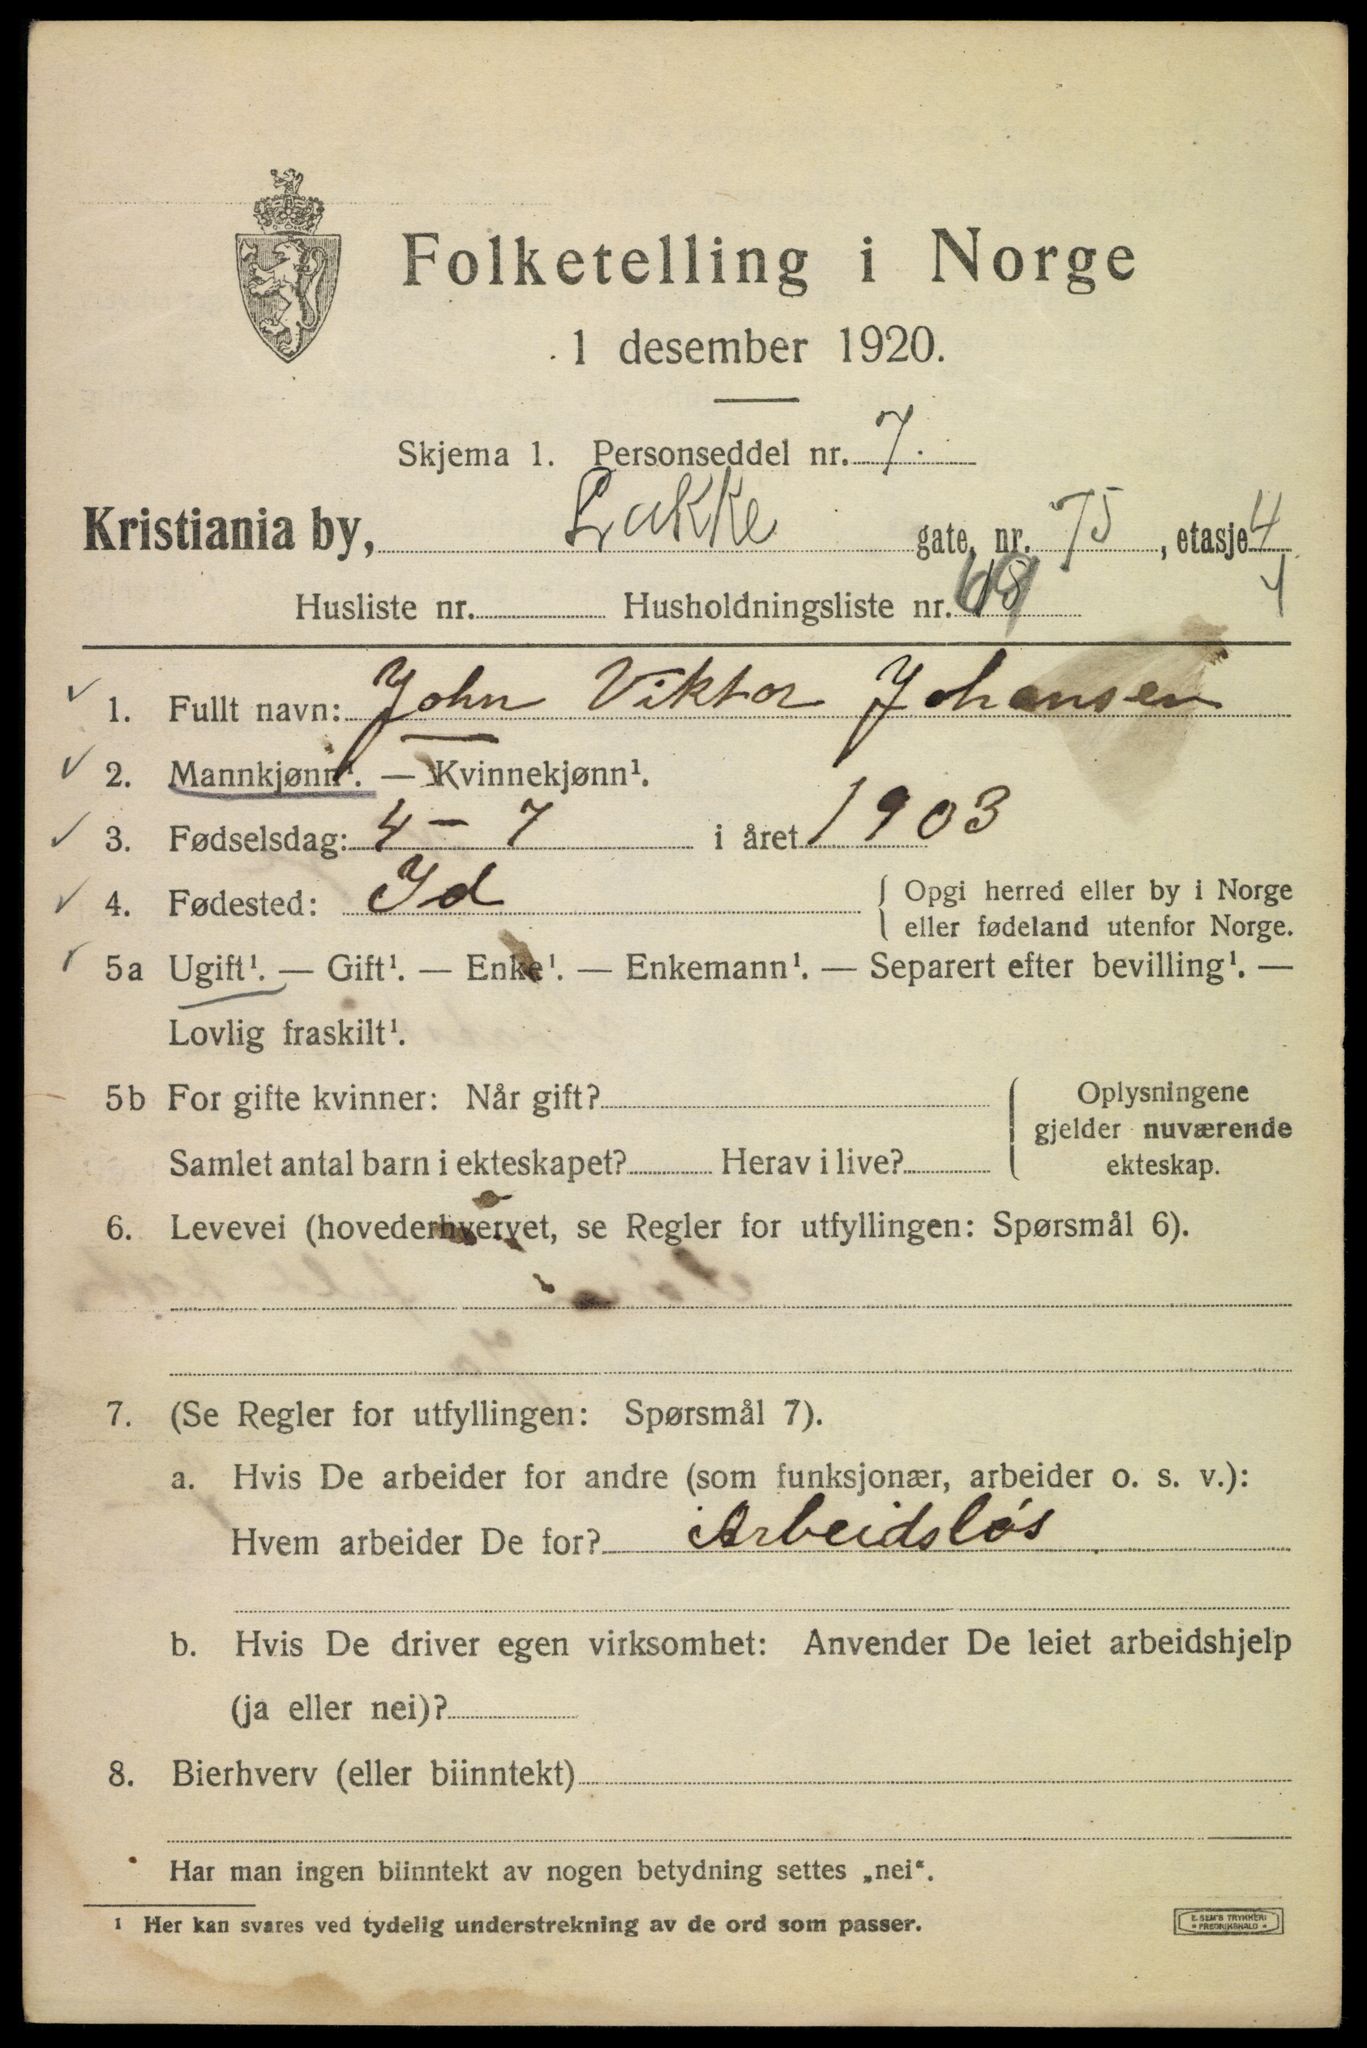 Folketelling i Norge
1 desember 1920.
Skjema 1. Personseddel nr. 7.
Kristiania by, Lakke gate, nr. 75, etasje 4
Husliste nr. Husholdningsliste nr. 4
1. Fullt navn: John Viktor Johansen
2. Mannkjønn¹. — Kvinnekjønn¹.
3. Fødselsdag: 4 – 7 i året 1903
4. Fødested: Id { Opgi herred eller by i Norge
eller fødeland utenfor Norge.
5a Ugift¹. — Gift¹. — Enke¹. — Enkemann¹. — Separert efter bevilling¹. —
Lovlig fraskilt¹.
5b For gifte kvinner: Når gift?
Samlet antal barn i ekteskapet? Herav i live?
Oplysningene
gjelder nuværende
ekteskap.
6. Levevei (hovederhvervet, se Regler for utfyllingen: Spørsmål 6).
7. (Se Regler for utfyllingen: Spørsmål 7).
a. Hvis De arbeider for andre (som funksjonær, arbeider o. s. v.):
Hvem arbeider De for? Arbeidsløs
b. Hvis De driver egen virksomhet: Anvender De leiet arbeidshjelp
(ja eller nei)?
8. Bierhverv (eller biinntekt)
Har man ingen biinntekt av nogen betydning settes „nei“.
¹ Her kan svares ved tydelig understrekning av de ord som passer.
E. SEM'S TRYKKERI
FREDRIKSHALD